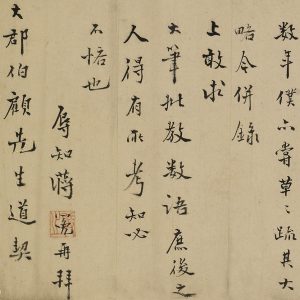 数年僕亦嘗草〻疏其大
略今併錄
上敢求
大筆批教数語庶後之
人得有所考知必
不悋也
辱知蔣 再拜
大郡伯顧先生道契